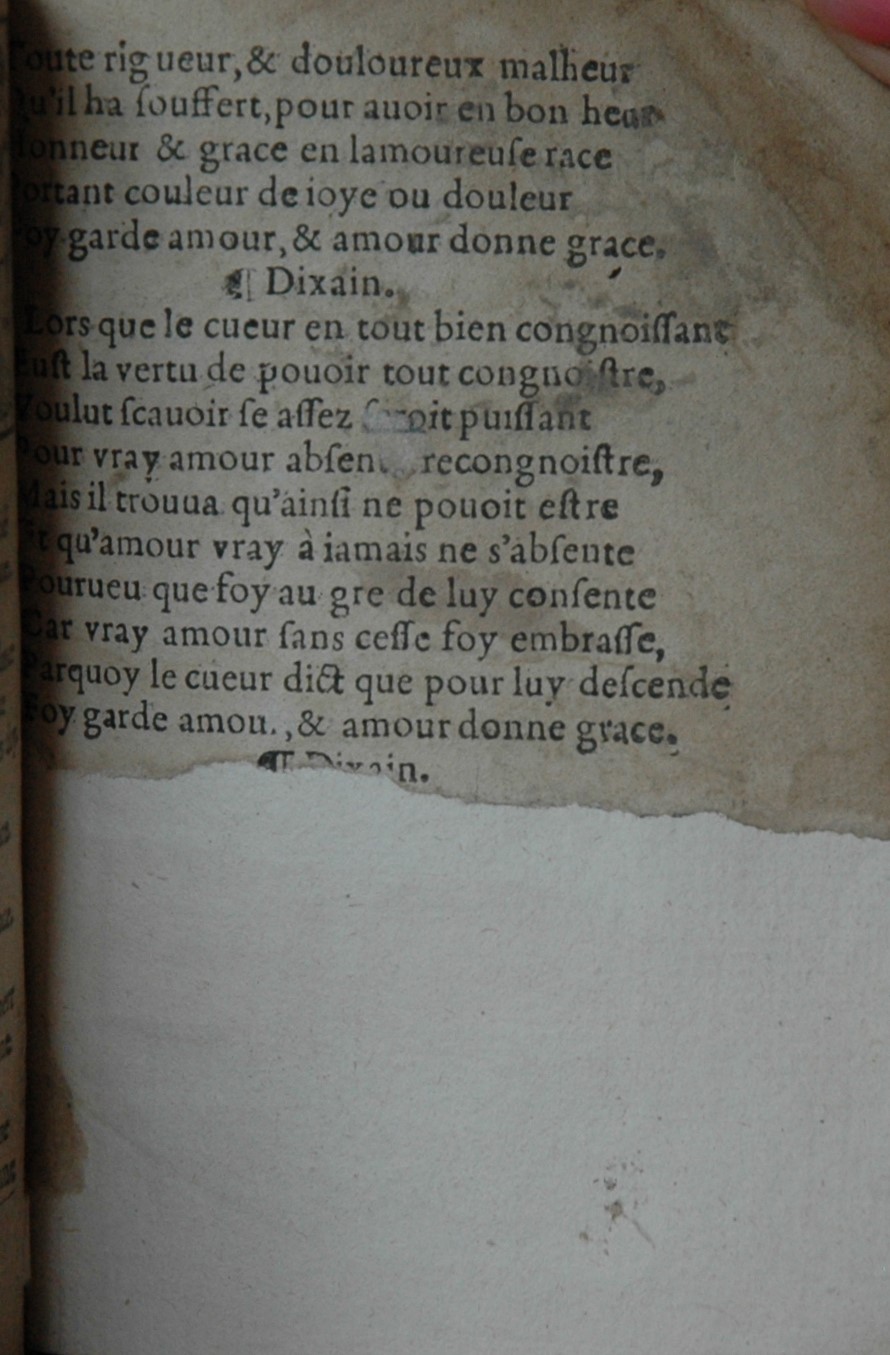 Toute rigueur, & douloureux malheur
Qu'il ha ſouffert, pour auoir en bon heur
Honneur & grace en lamoureuſe race
Portant couleur de ioye ou douleur
Foy garde amour, & amour donne grace.
¶ Dixain.
Lors que le cueur en tout bien congnoiſſant
Euſt la vertu de pouoir tout congnoiſtre,
Voulut ſcauoir ſe aſſez puiſſant
Pour vray amour recongnoiſtre,
Mais il trouua qu'ainſi ne pouoit eſtre
Et qu'amour vray à iamais ne s'abſente
Pourueu que foy au gre de luy conſente
Car vray amour ſans ceſſe foy embraſſe,
Parquoy le cueur dict que pour luy deſcende
Foy garde amour, & amour donne grace.
¶ Dixain.